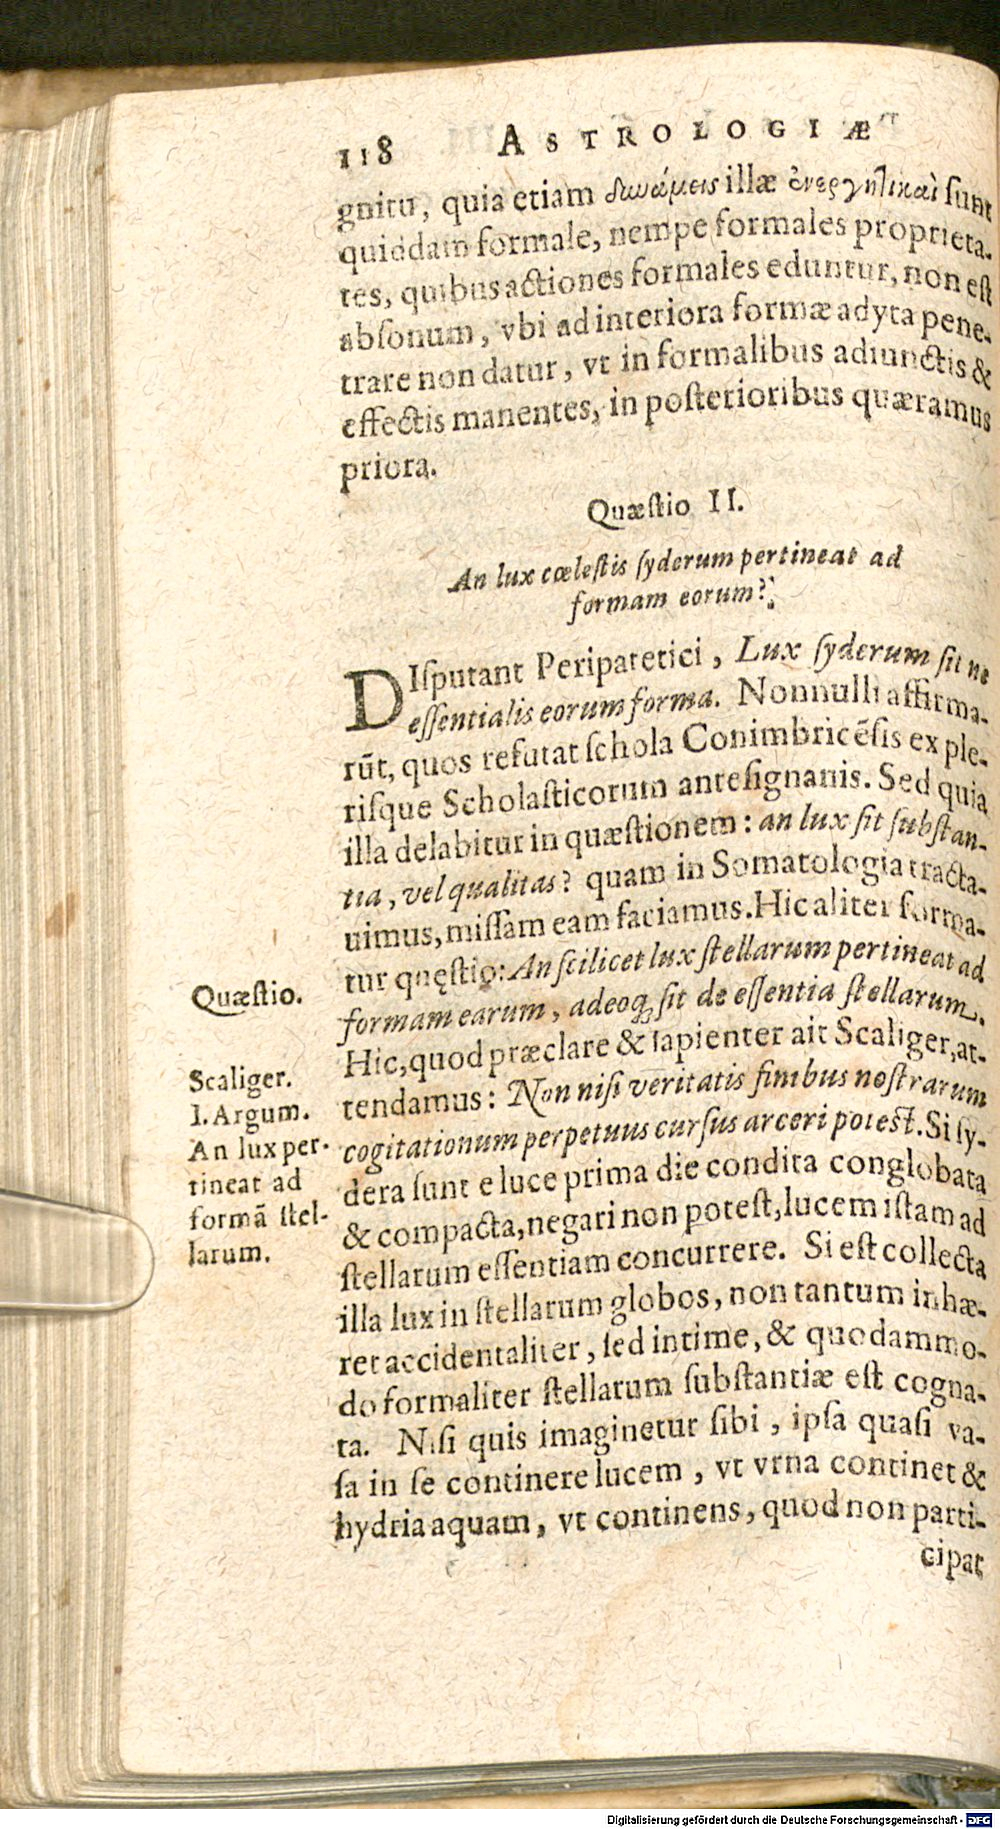 118 ASTROLOGIÆ
gnitu, quia etiam δυνάμεις illæ ἐνεργητικαὶ sunt
quiddam formale, nempe formales proprieta-
tes, quibus actiones formales eduntur, non est
absonum, vbi ad interiora formæ adyta pene-
trare non datur, vt in formalibus adiunctis &
effectis manentes, in posterioribus quæramus
priora.
Quæstio II.
An lux cœlestis syderum pertineat ad
formam eorum?
DIsputant Peripatetici, Lux syderum sit ne
essentialis eorum forma. Nonnulli affirma-
rūt, quos refutat schola Conimbricēsis ex ple-
risque Scholasticorum antesignanis. Sed quia
illa delabitur in quæstionem: an lux sit substan-
tia, vel qualitas? quam in Somatologia tracta-
uimus, missam eam faciamus. Hic aliter forma-
tur quęstio: An scilicet lux stellarum pertineat ad
formam earum, adeoq; sit de essentia stellarum.
Hic, quod præclare & sapienter ait Scaliger, at-
tendamus: Non nisi veritatis finibus nostrarum
cogitationum perpetuus cursus arceri potest. Si sy-
dera sunt e luce prima die condita conglobata
& compacta, negari non potest, lucem istam ad
stellarum essentiam concurrere. Si est collecta
illa lux in stellarum globos, non tantum inhæ-
ret accidentaliter, sed intime, & quodammo-
do formaliter stellarum substantiæ est cogna-
ta. Nisi quis imaginetur sibi, ipsa quasi va-
sa in se continere lucem, vt vrna continet &
hydria aquam, vt continens, quod non parti-
cipat
Quæstio.
Scaliger.
I. Argum.
An lux per-
tineat ad
formā stel-
larum.
Digitalisierung gefördert durch die Deutsche Forschungsgemeinschaft - DFG